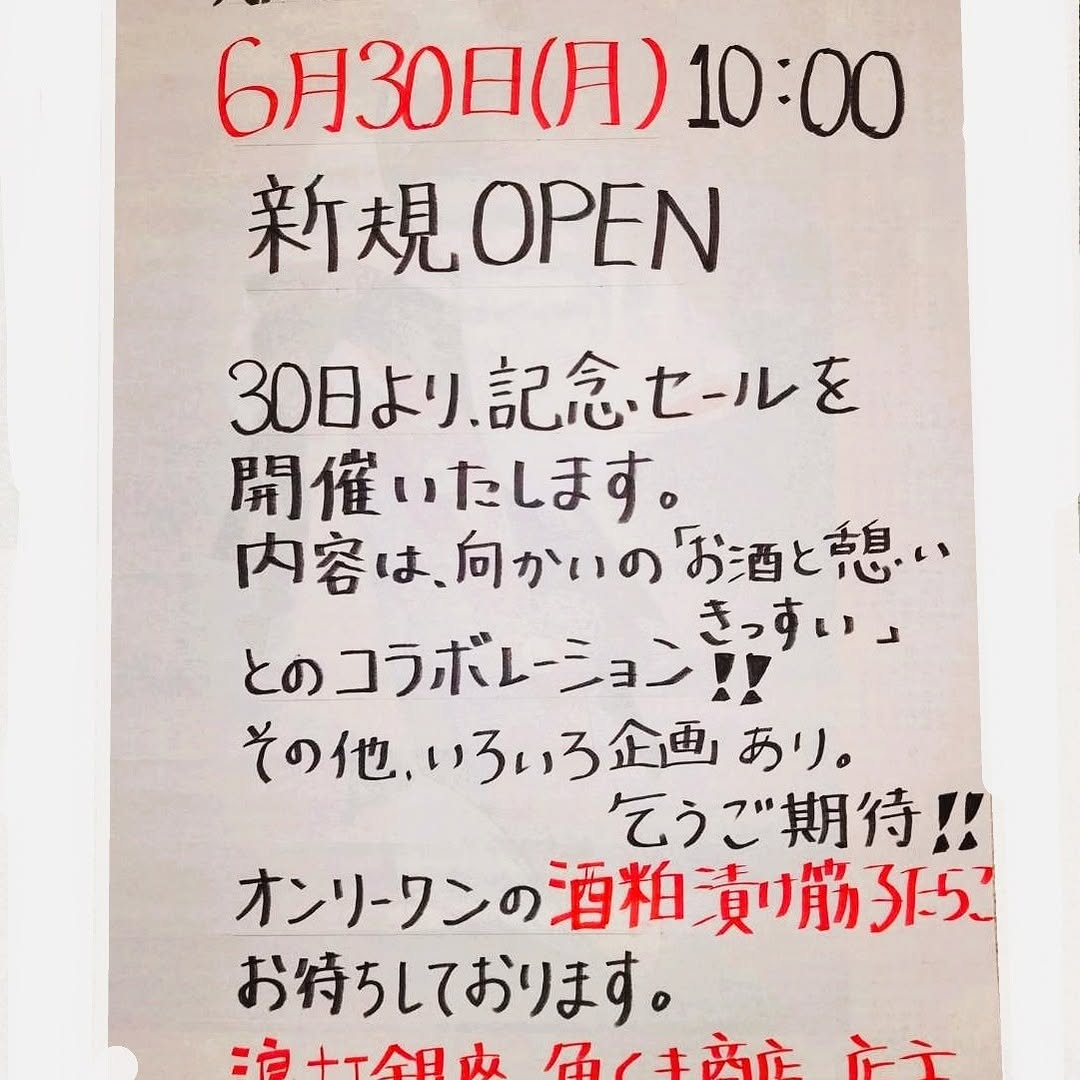 6月30日(月)10:00
新規OPEN
30日より、記念セールを
開催いたします。
内容は、向かいの「お酒と憩い
きっすい」
とのコラボレーション!!
その他、いろいろ企画あり。
乞うご期待!!
オンリーワンの酒粕漬け筋子たらこ
お待ちしております。
浪打銀座 魚くま商店 店主